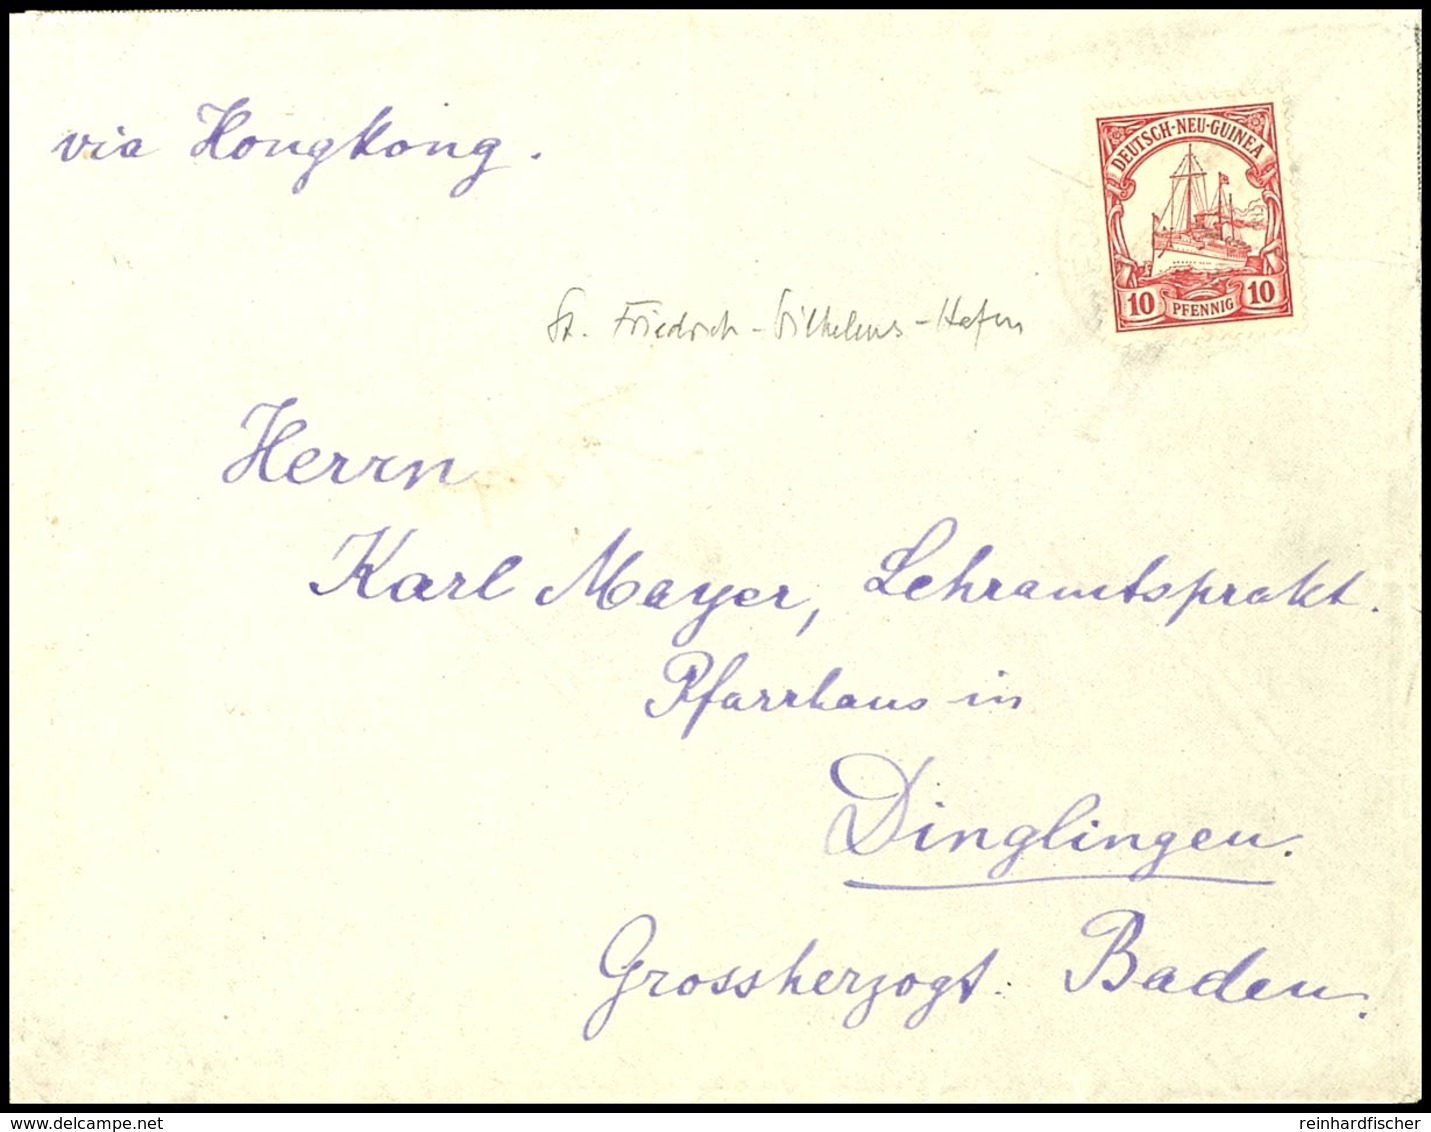 via Hongkong.
DEUTSCH-NEU-GUINEA
10 PFENNIG 10
St. Friedrich-Wilhelms-Hafen
Herrn
Karl Mayer, Lehramtsprakt.
Pfarrhaus in
Dinglingen.
Grossherzogt. Baden.
reinhardfischer